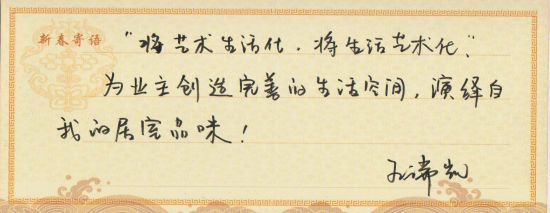 新春寄语
“将艺术生活化，将生活艺术化”。
为业主创造完善的生活空间，演绎自
我的居室品味！